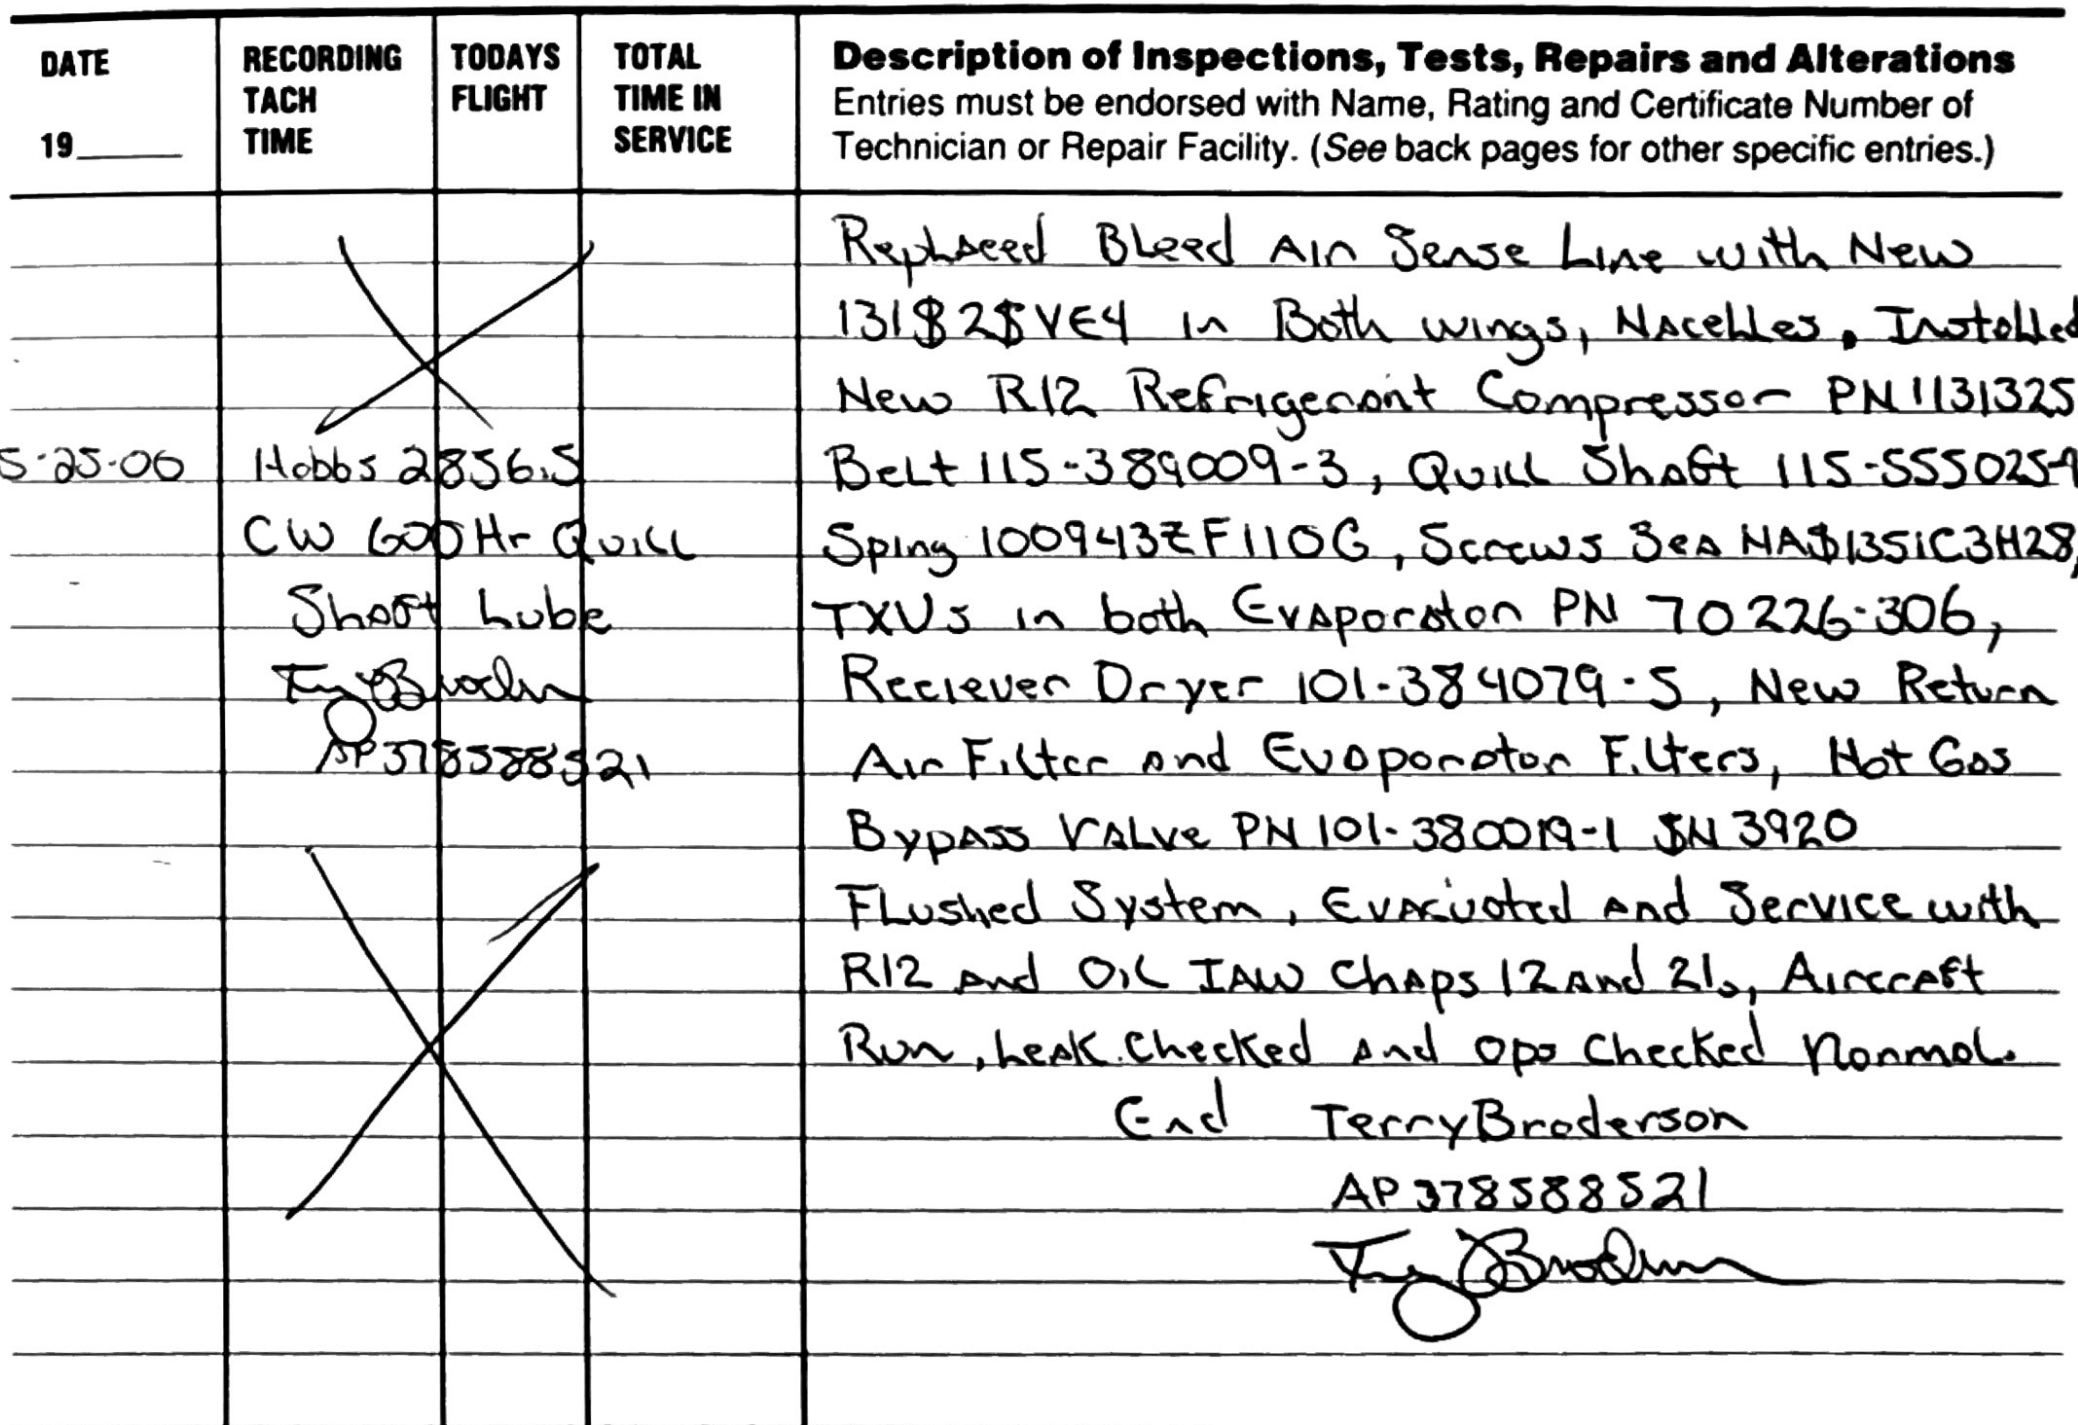 DATE
19
RECORDING
TACH
TIME
TODAYS
FLIGHT
TOTAL
TIME IN
SERVICE
Description of Inspections, Tests, Repairs and Alterations
Entries must be endorsed with Name, Rating and Certificate Number of
Technician or Repair Facility. (See back pages for other specific entries.)
Replaced Bleed Air Sense Line with New
131$2$VE4 in Both wings, Nacelles. Installed
New R12 Refrigerant Compressor PN 1131325
5-25-06 Hobbs 2856.5 Belt 115-389009-3, Quill Shaft 115-555025-9
CW 600 Hr Quill Sping 100943ZF110G, Screws 3ea NA$1351C3H28,
Shaft Lube TXVs in both Evaporator PN 70226-306,
Reciever Dryer 101-384079-5, New Return
AP 378588521 Air Filter and Evaporator Filters, Hot Gas
Bypass Valve PN 101-380019-1 SN 3920
Flushed System, Evacuated and Service with
R12 and Oil IAW Chaps 12 and 21, Aircraft
Run, Leak Checked and Ops Checked Normal.
End Terry Broderson
AP 378588521